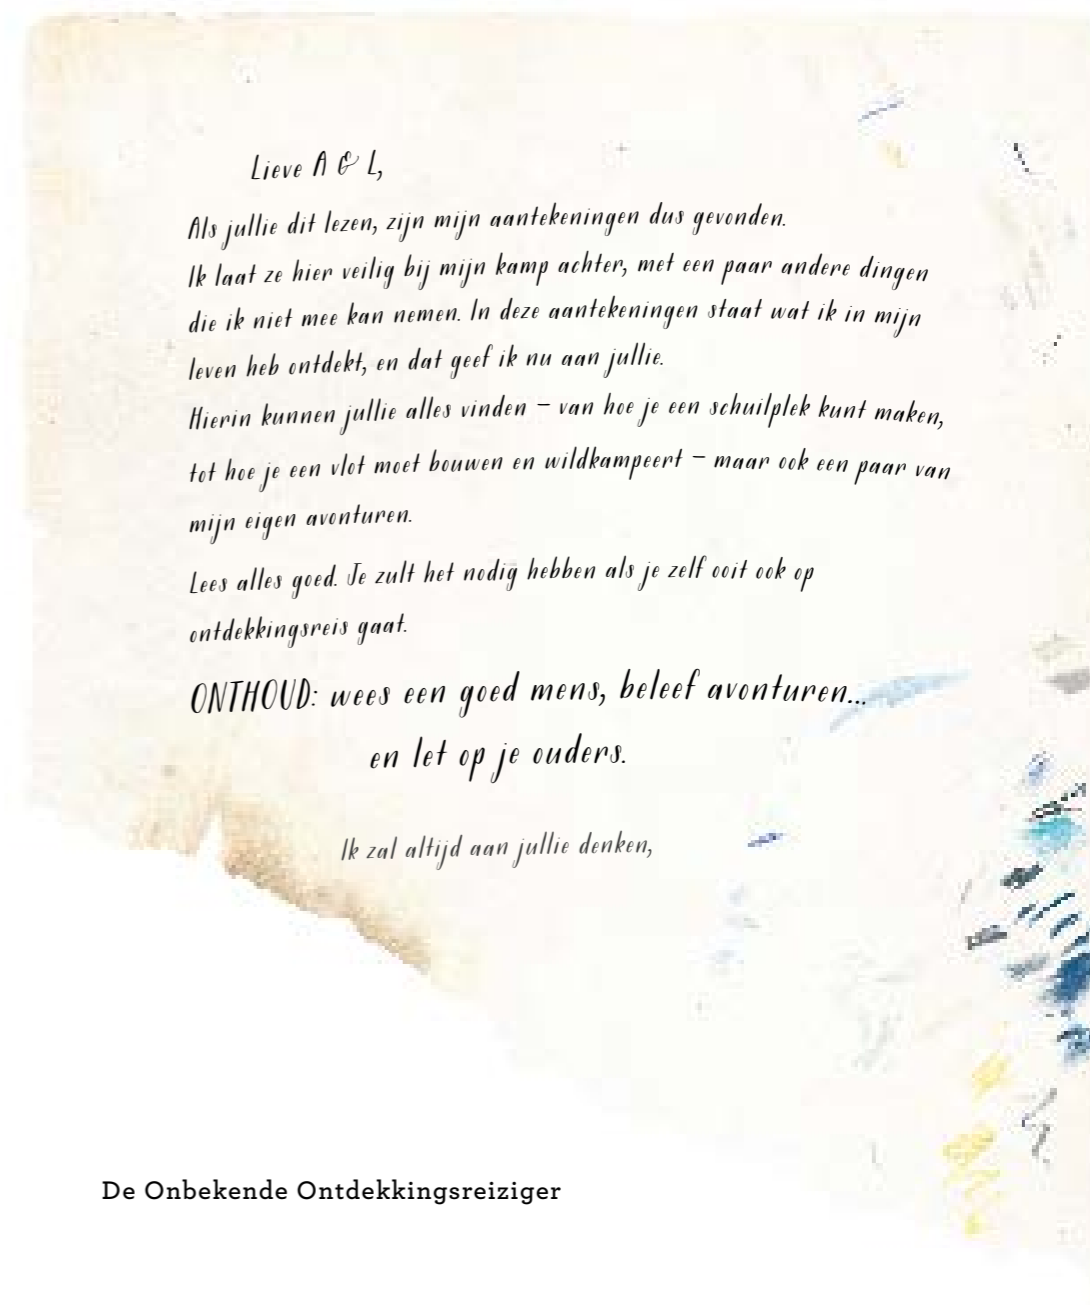 Lieve A & L,
Als jullie dit lezen, zijn mijn aantekeningen dus gevonden.
Ik laat ze hier veilig bij mijn kamp achter, met een paar andere dingen
die ik niet mee kan nemen. In deze aantekeningen staat wat ik in mijn
leven heb ontdekt, en dat geef ik nu aan jullie.
Hierin kunnen jullie alles vinden – van hoe je een schuilplek kunt maken,
tot hoe je een vlot moet bouwen en wildkampeert – maar ook een paar van
mijn eigen avonturen.
Lees alles goed. Je zult het nodig hebben als je zelf ooit ook op
ontdekkingsreis gaat.
ONTHOUD: wees een goed mens, beleef avonturen...
en let op je ouders.
Ik zal altijd aan jullie denken,
De Onbekende Ontdekkingsreiziger